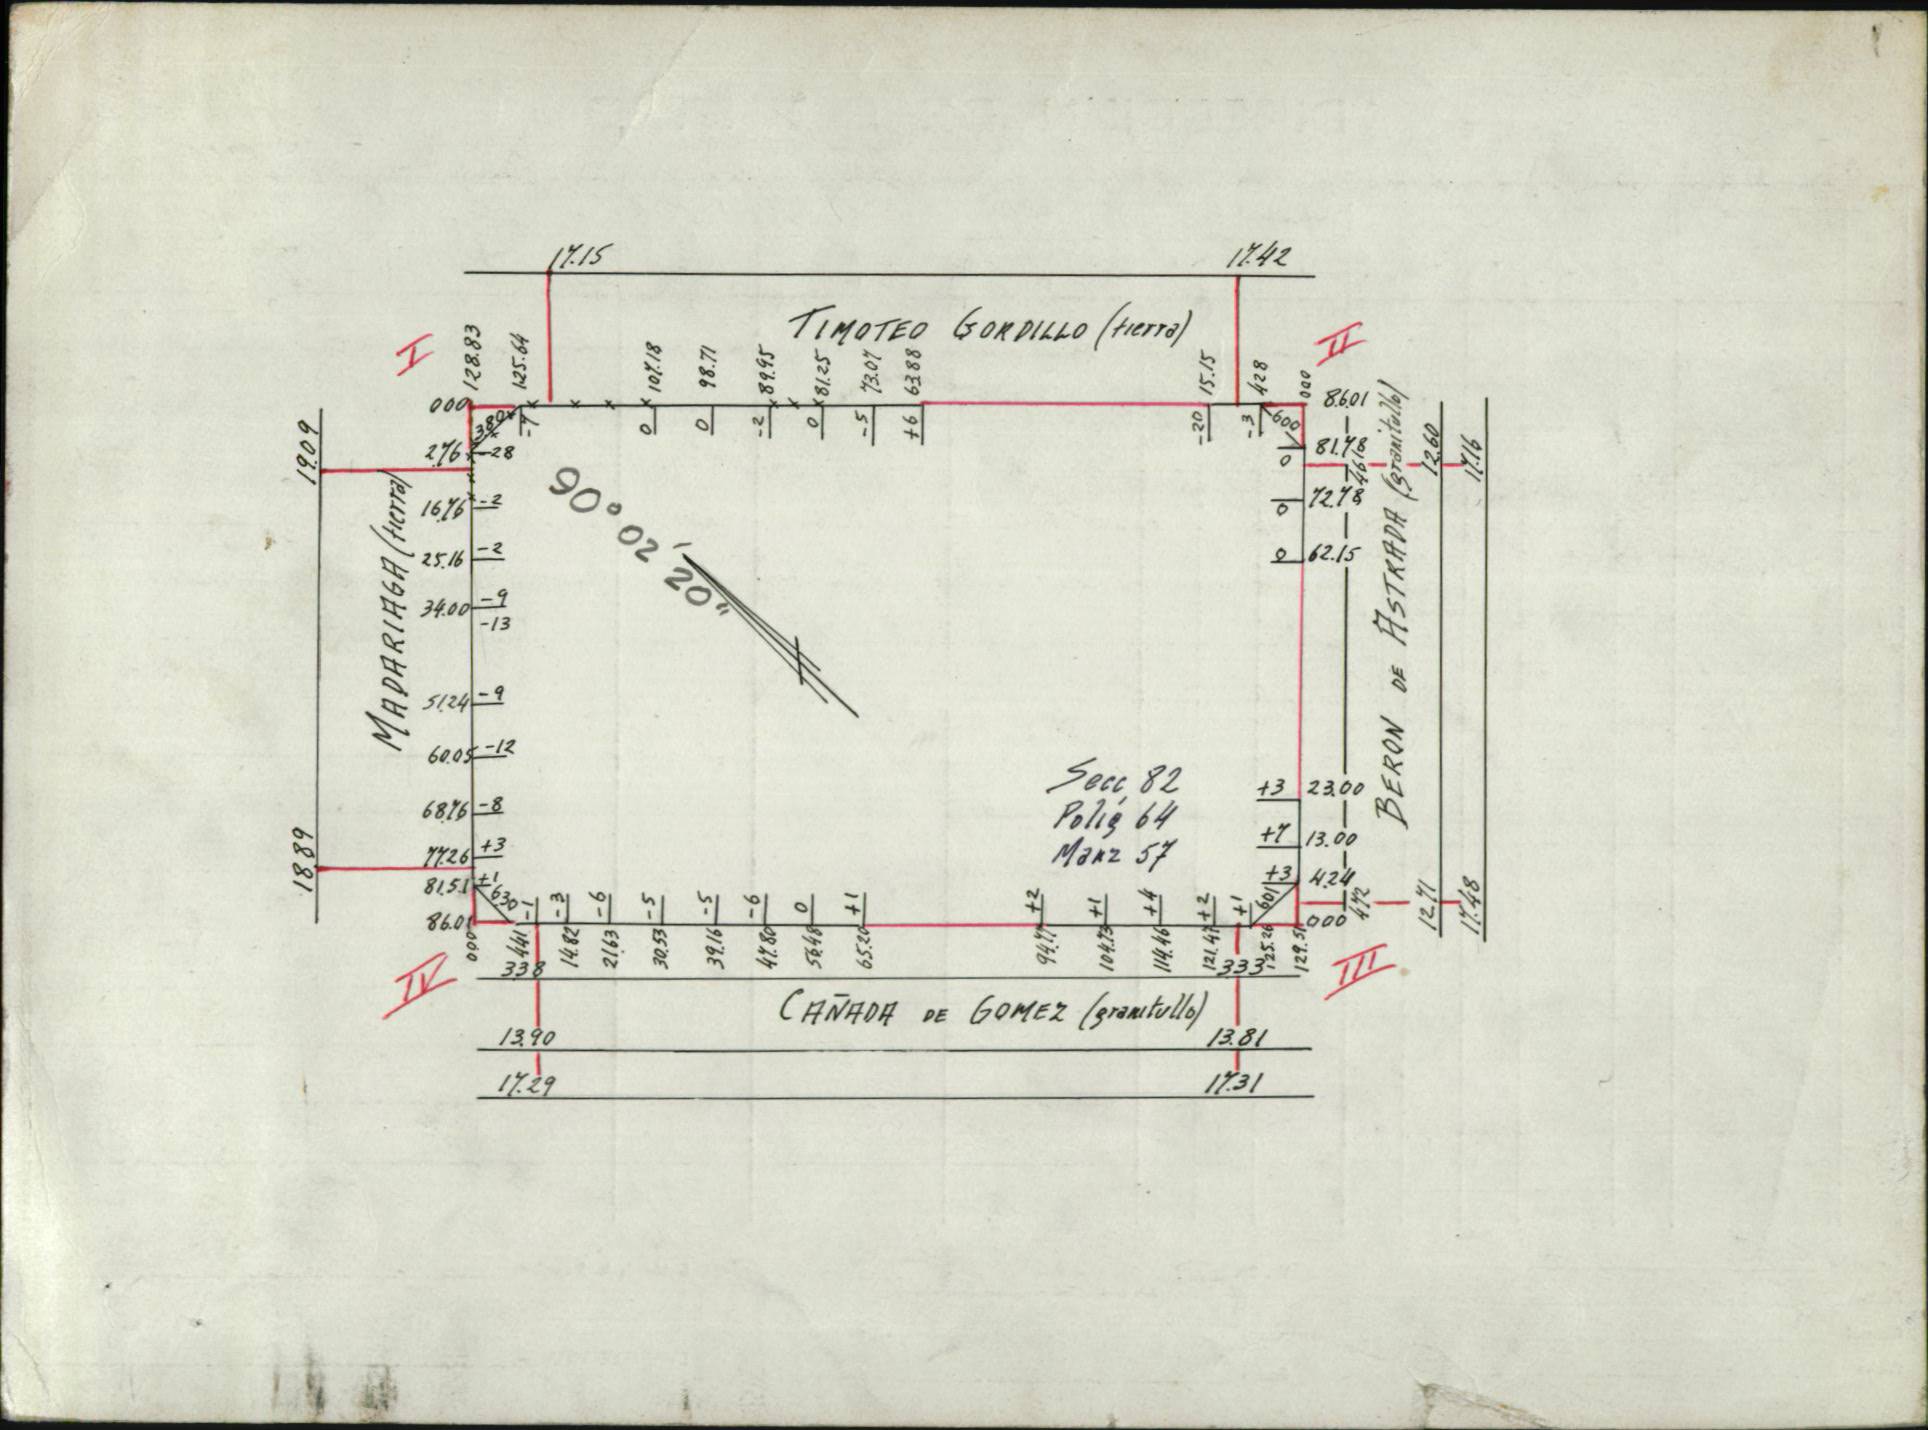 17.15
17.42
TIMOTEO GORDILLO (tierra)
I
II
128.83
125.64
107.18
98.71
89.95
81.25
73.07
63.88
15.15
4.28
000
000
380
-7
0
0
-2
0
-5
+6
-20
-3
600
19.09
18.89
MADARIAGA (tierra)
2.76 -28
16.76 -2
25.16 -2
34.00 -9
-13
51.24 -9
60.05 -12
68.76 -8
77.26 +3
81.51 +1
86.01
630
90° 02' 20"
Secc. 82
Polig 64
Manz 57
86.01
0 81.78
4.618
0 72.78
0 62.15
+3 23.00
+7 13.00
+3 4.24
000
4.72
601
BERON DE ASTRADA (granitullo)
12.60
17.16
12.71
17.48
-1
-3
-6
-5
-5
-6
0
+1
+2
+1
+4
+2
+1
000
4.41
14.82
21.63
30.53
39.16
47.80
56.48
65.20
94.77
104.73
114.46
121.47
125.26
129.51
338
333
IV
III
CAÑADA DE GOMEZ (granitullo)
13.90
13.81
17.29
17.31